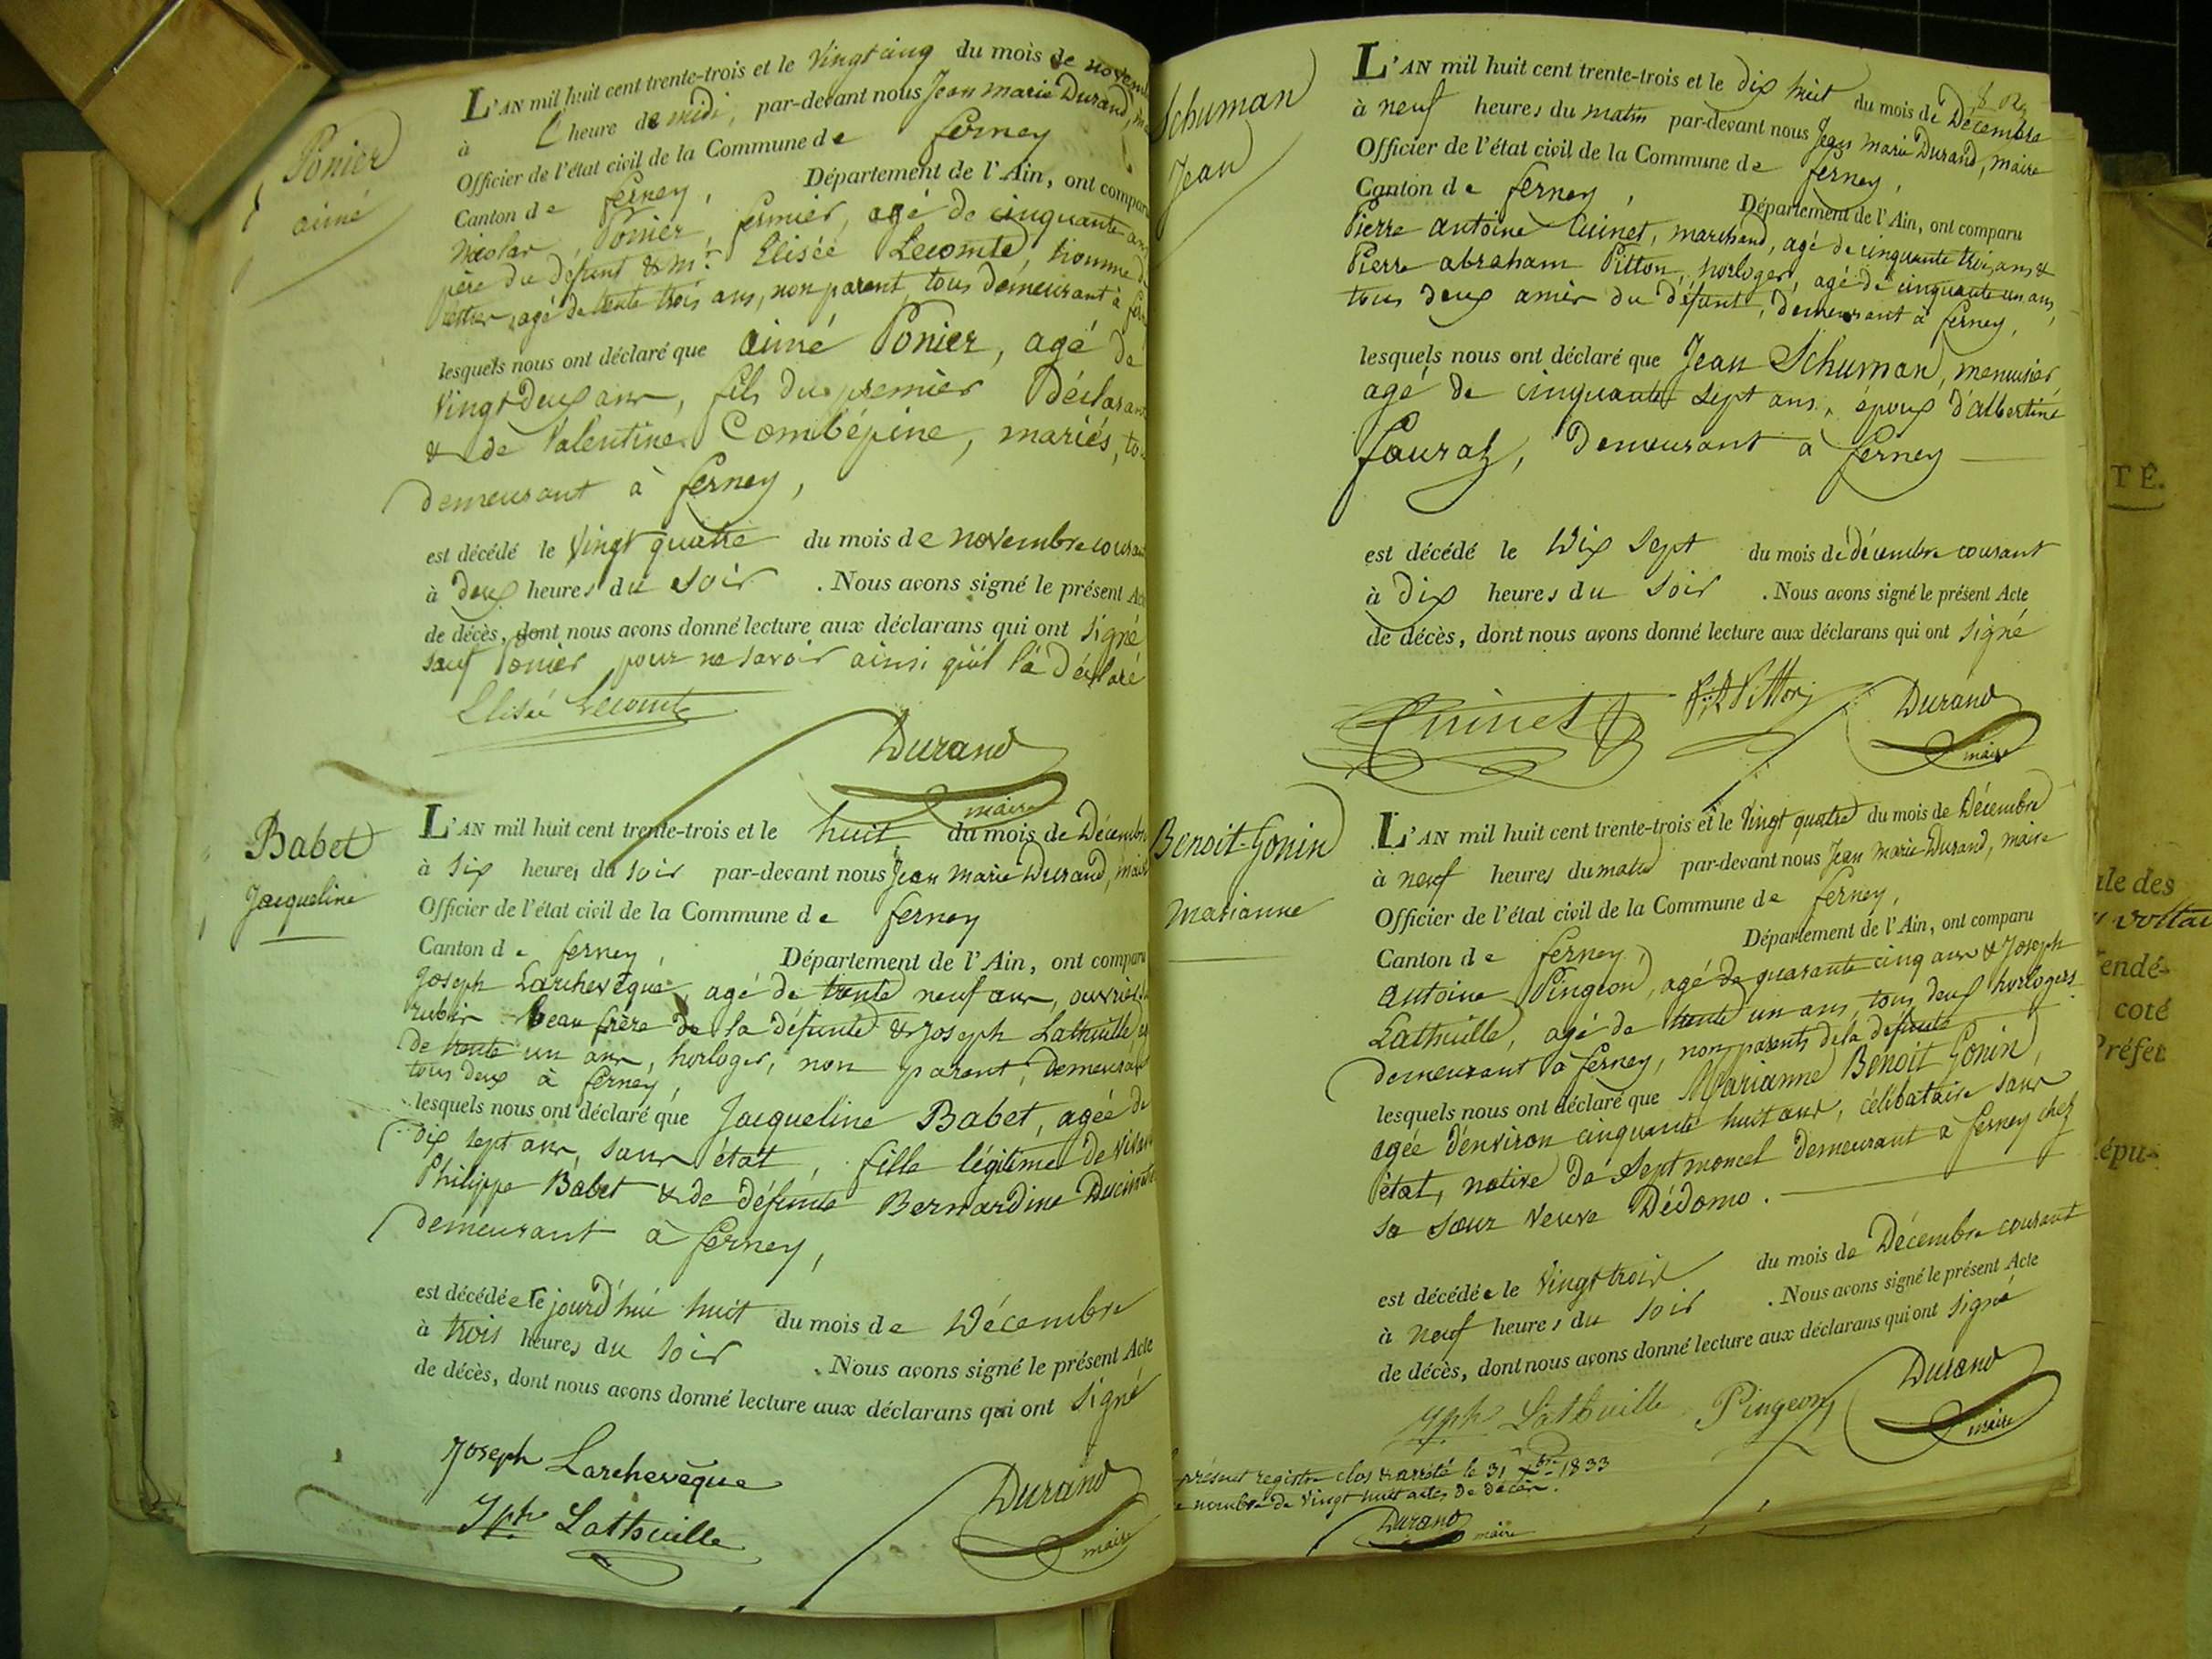 Ponier
aimé
L'AN mil huit cent trente-trois et le Vingt cinq du mois de novemb
à L heure de midi, par-devant nous Jean marie Durand, m
Officier de l'état civil de la Commune de ferney
Canton de ferney, Département de l'Ain, ont compar
Nicolas Ponier, fermier, agé de cinquante an
père du defunt & Mr. Elisée Lecomte, homme de
lettres, agé de trente trois ans, non parent, tous demeurant à fer
lesquels nous ont déclaré que aimé Ponier, agé de
Vingt Deux ans, fils du premier Déclarant
& de Valentine Combépine, mariés, to
demeurant à ferney,
est décédé le Vingt quatre du mois de novembre couran
à deux heures du Soir . Nous avons signé le présent Acte
de décès, dont nous avons donné lecture aux déclarans qui ont signé
sauf Ponier pour ne savoir ainsi qu'il l'a déclaré
Elisée Lecomte
Durand
maire
Babet
Jacqueline
L'AN mil huit cent trente-trois et le huit du mois de Décembre
à Six heures du soir par-devant nous Jean Marie Durand, maire
Officier de l'état civil de la Commune de ferney
Canton de ferney, Département de l'Ain, ont comparu
Joseph Larchevêque, agé de trente neuf ans, ouvrier
rubis beau frère de la défunte & Joseph Lathuille, ag
de trente un ans, horloger, non parent, demeurant
tous deux à ferney,
lesquels nous ont déclaré que Jacqueline Babet, agée de
dix sept ans, sans état, fille légitime de vivant
Philippe Babet & de défunte Bernardine
demeurant à ferney,
est décédée le jourd'hui huit du mois de Décembre
à trois heures du soir . Nous avons signé le présent Acte
de décès, dont nous avons donné lecture aux déclarans qui ont signé
Joseph Larchevêque
Jph Lathuille
Durand
maire
Schuman
Jean
L'AN mil huit cent trente-trois et le dix huit du mois de Décembre
à neuf heures du matin par-devant nous Jean Marie Durand, maire
Officier de l'état civil de la Commune de ferney,
Canton de ferney, Département de l'Ain, ont comparu
Pierre Antoine Cuinet, marchand, agé de cinquante trois ans &
Pierre abraham Pitton, horloger, agé de cinquante un ans,
tous deux amis du défunt, demeurant à ferney,
lesquels nous ont déclaré que Jean Schuman, menuisier,
agé de cinquante sept ans, époux d'albertine
fauraz, demeurant à ferney
est décédé le Dix Sept du mois de décembre courant
à Dix heures du soir . Nous avons signé le présent Acte
de décès, dont nous avons donné lecture aux déclarans qui ont signé
Cuinet
P. A. Pitton
Durand
maire
Benoit-Gonin
Marianne
L'AN mil huit cent trente-trois et le Vingt quatre du mois de Décembre
à neuf heures du matin par-devant nous Jean Marie Durand, maire
Officier de l'état civil de la Commune de ferney,
Canton de ferney, Département de l'Ain, ont comparu
Antoine Pingeon, agé de quarante cinq ans & Joseph
Lathuille, agé de trente un ans, tous deux horlogers
demeurant à ferney, non parents de la défunte
lesquels nous ont déclaré que Marianne Benoit Gonin,
agée d'environ cinquante huit ans, célibataire sans
état, native de Septmoncel demeurant à ferney chez
sa sœur veuve Dédomo.
est décédée le Vingt trois du mois de Décembre courant
à neuf heures du soir . Nous avons signé le présent Acte
de décès, dont nous avons donné lecture aux déclarans qui ont signé
Jph Lathuille Pingeon
Durand
maire
présent registre clos & arrêté le 31 Xbre 1833
nombre de Vingt huit actes de décès.
Durand
maire
TÉ.
ale des
endé-
coté
Préfet
épu-